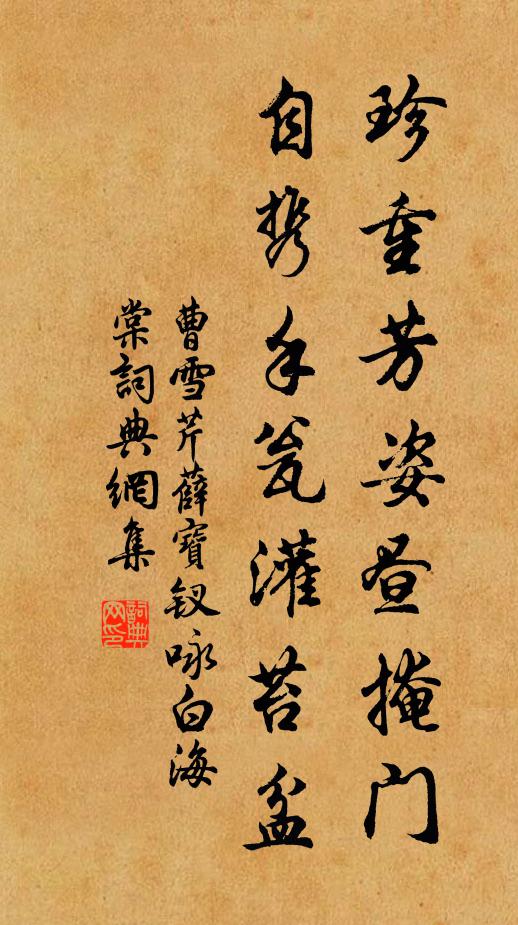 珍重芳姿昼掩门
自携手瓮灌苔盆
曹雪芹薛寶钗咏白海
棠詞典網集
詞典
网印